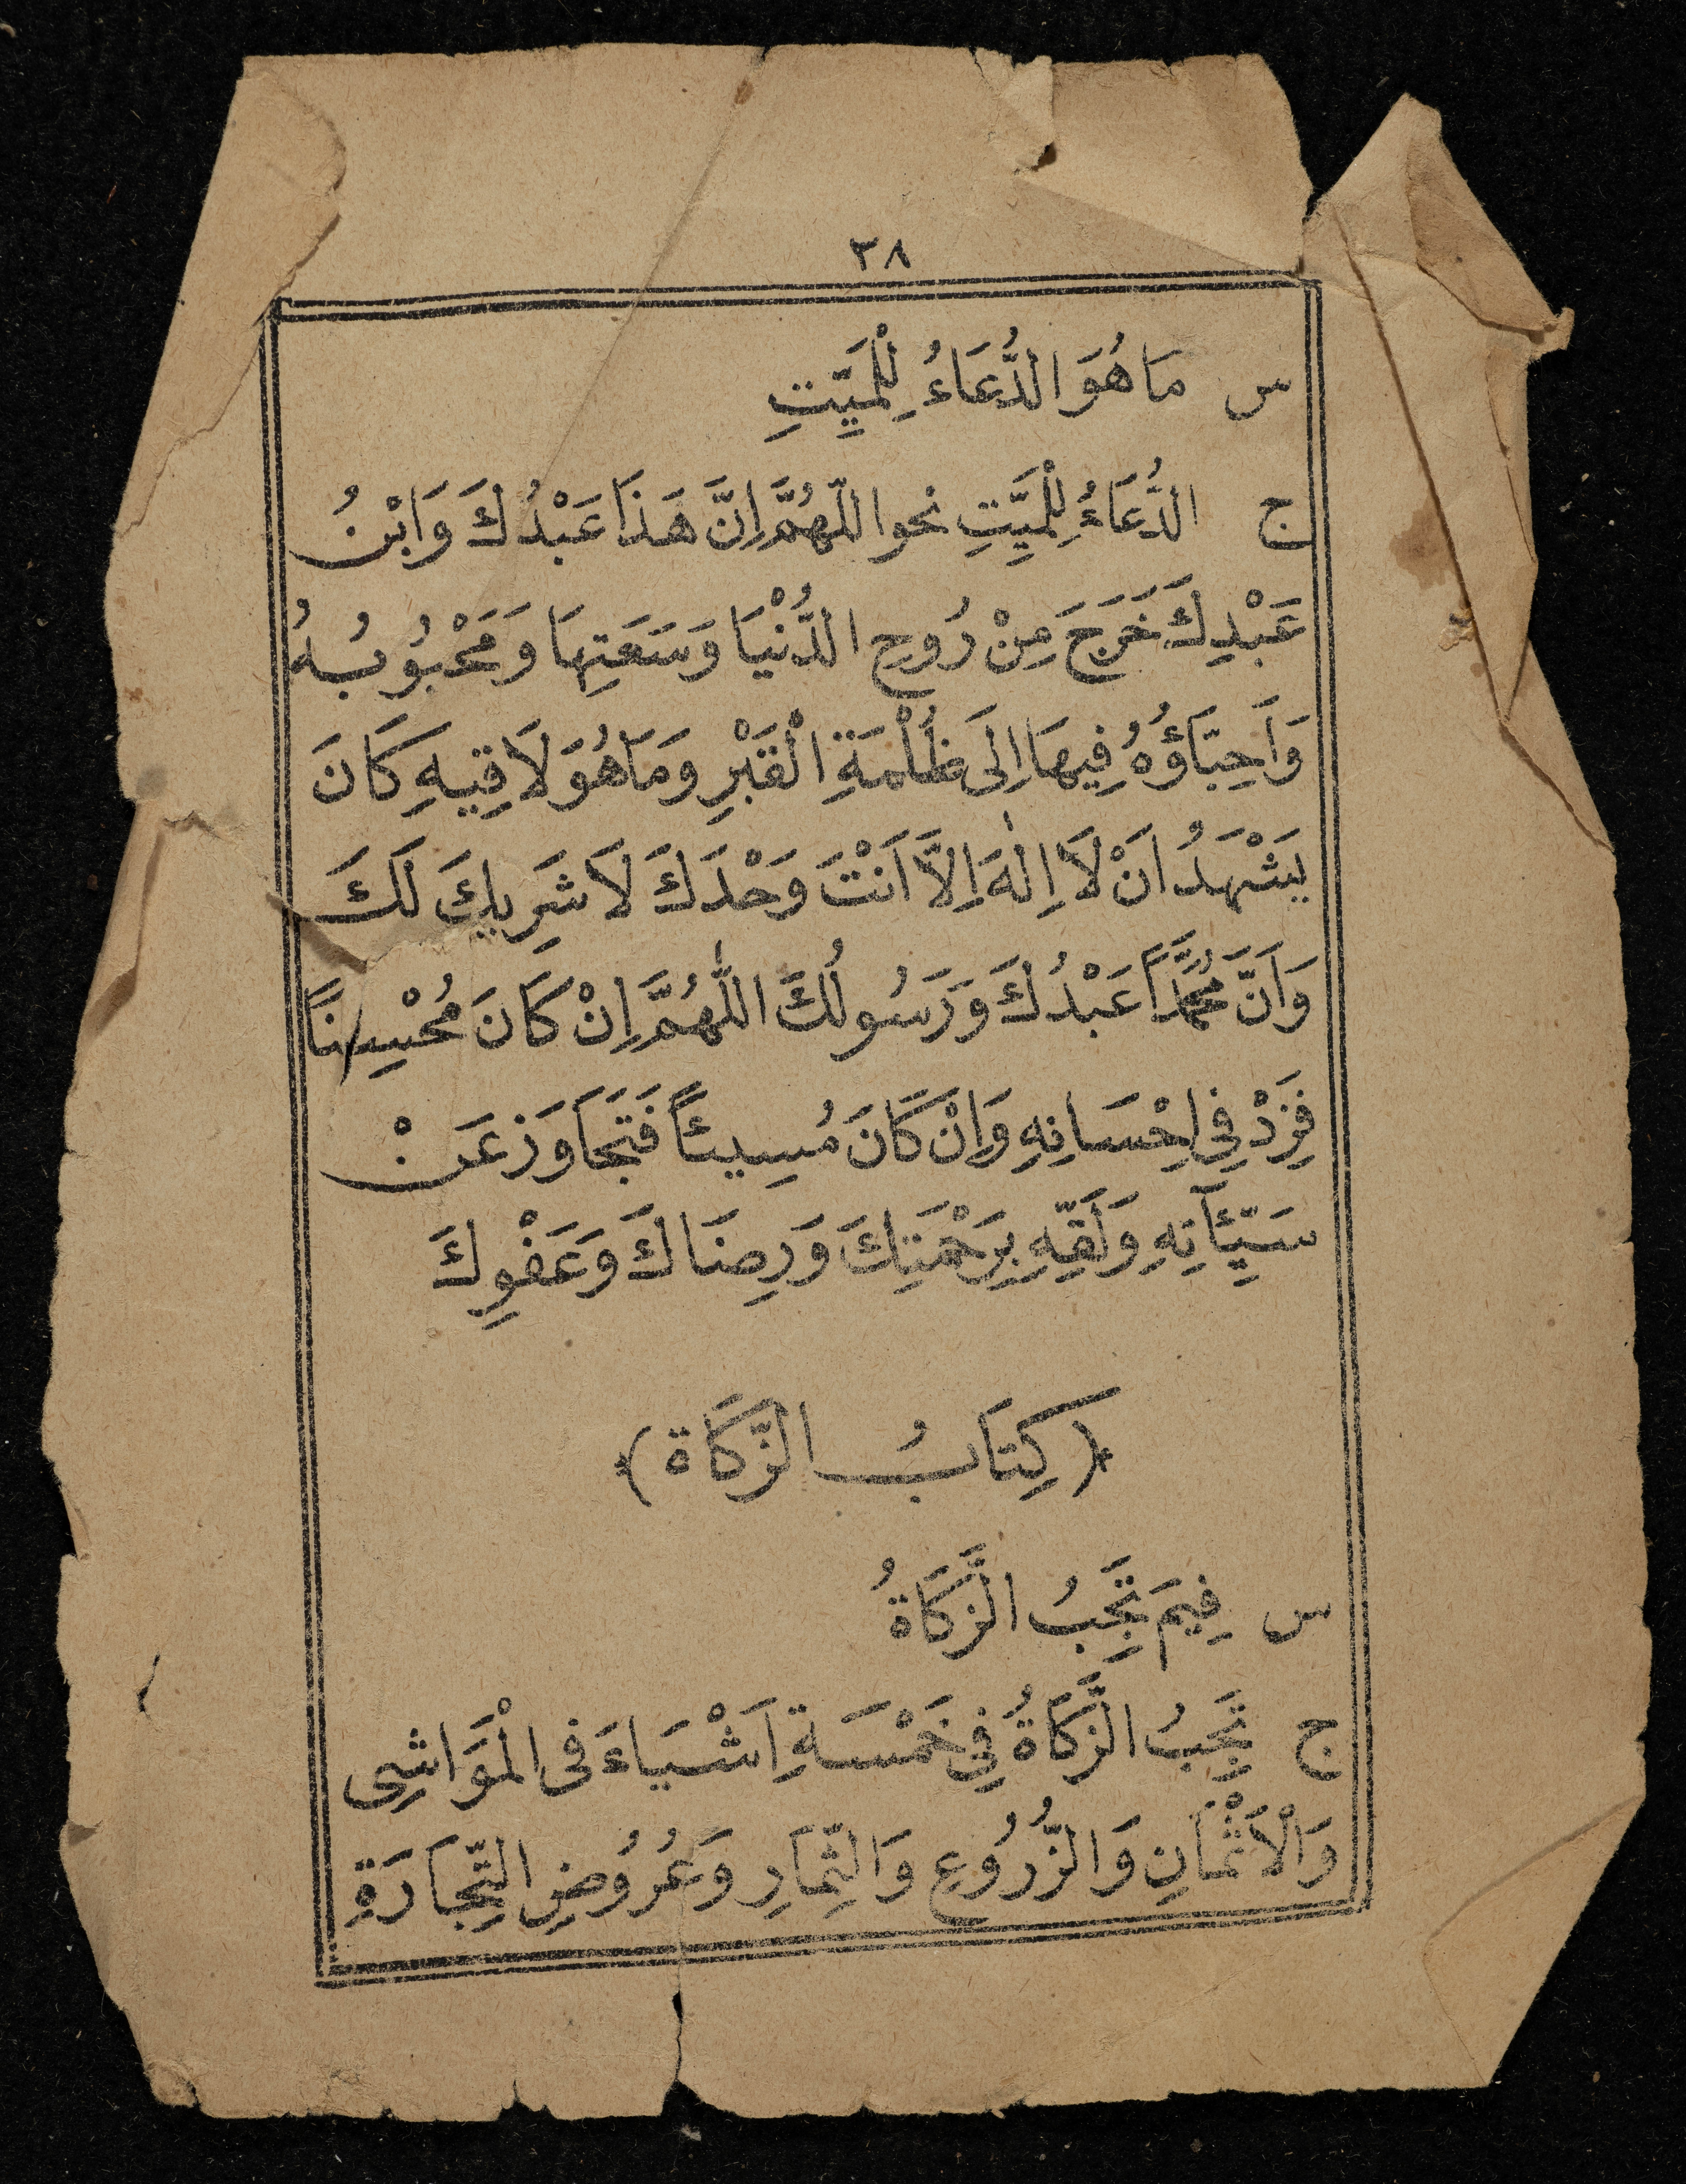 ٣٨
س مَا هُوَ الدُّعَاءُ لِلْمَيِّتِ
ج الدُّعَاءُ لِلْمَيِّتِ نحو اللّٰهُمَّ اِنَّ هَذَا عَبْدُكَ وَابْنُ
عَبْدِكَ خَرَجَ مِنْ رُوحِ الدُّنْيَا وَسَعَتِهَا وَمَحْبُوبُهُ
وَاَحِبَّاؤُهُ فِيهَا اِلَى ظُلْمَةِ الْقَبْرِ وَمَا هُوَ لَاقِيهِ كَانَ
يَشْهَدُ اَنْ لَا اِلٰهَ اِلَّا اَنْتَ وَحْدَكَ لَا شَرِيكَ لَكَ
وَاَنَّ مُحَمَّدًا عَبْدُكَ وَرَسُولُكَ اللّٰهُمَّ اِنْ كَانَ مُحْسِنًا
فَزِدْ فِي اِحْسَانِهِ وَاِنْ كَانَ مُسِيئًا فَتَجَاوَزْ عَنْ
سَيِّئَآتِهِ وَلَقِّهِ بِرَحْمَتِكَ وَرِضَاكَ وَعَفْوِكَ
﴿ كِتَابُ الزَّكَاة ﴾
س فِيمَ تَجِبُ الزَّكَاةُ
ج تَجِبُ الزَّكَاةُ فِي خَمْسَةِ اَشْيَاءَ فى الْمَوَاشِى
وَالْاَثْمَانِ وَالزُّرُوعِ وَالثِّمَارِ وَعُرُوضِ التِّجَارَةِ